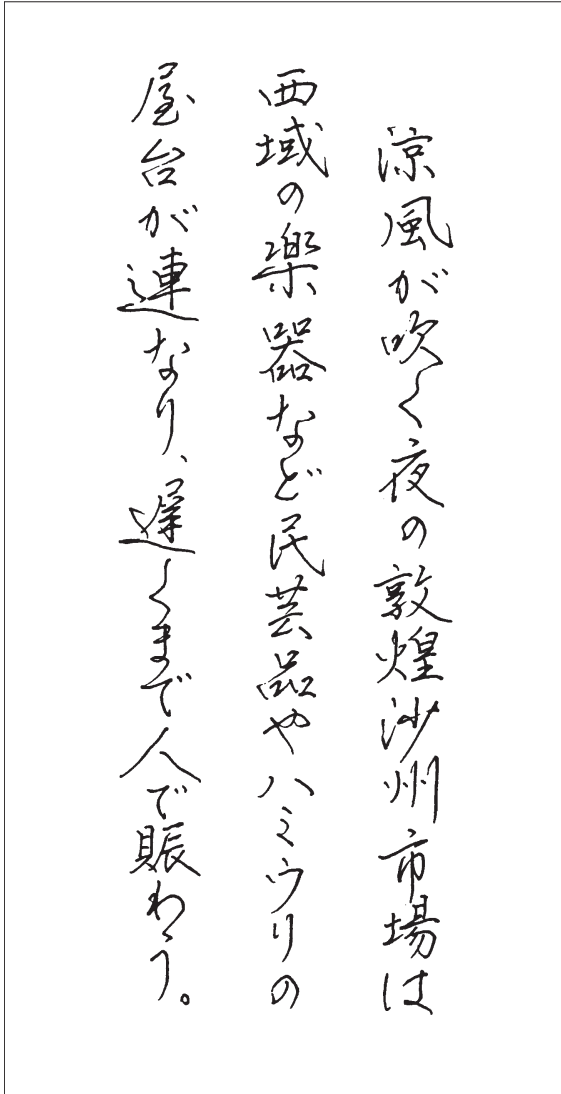 涼風が吹く夜の敦煌沙州市場は
西域の楽器など民芸品やハミウリの
屋台が連なり、遅くまで人で賑わう。